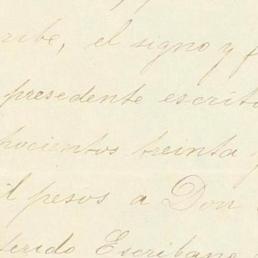 ribe, el signo y f
presedente escritu
hocientos treinta y
il pesos a Don
ferido Escribano